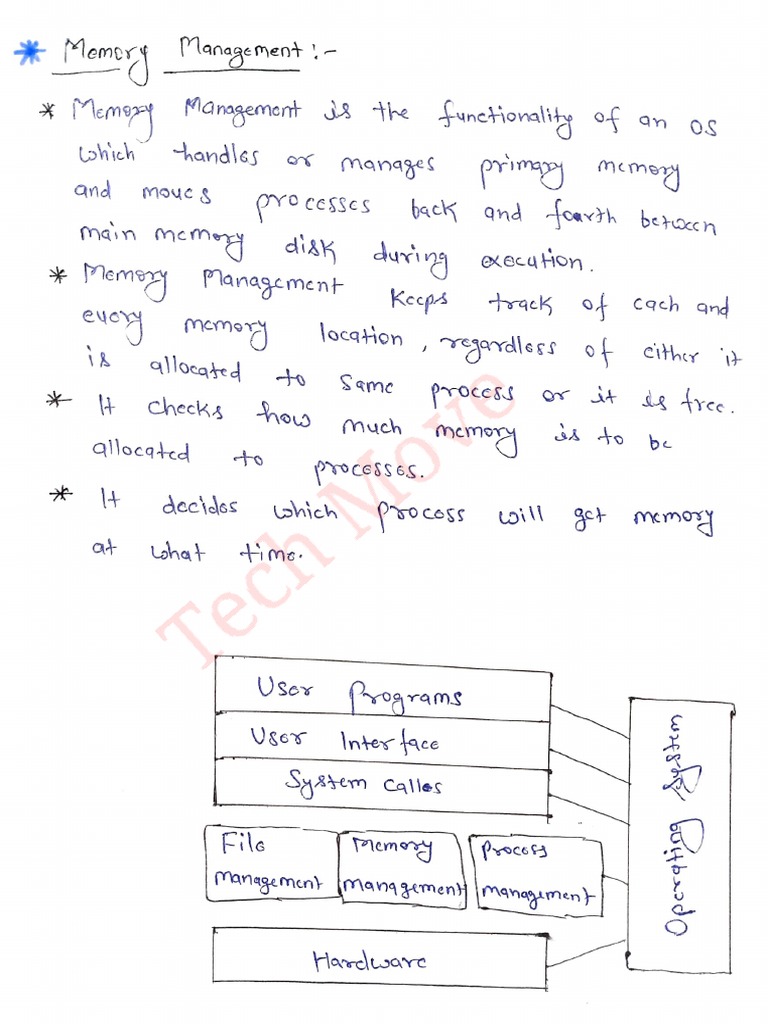 * Memory Management :-
* Memory Management is the functionality of an OS
which handles or manages primary memory
and moves processes back and fourth between
main memory disk during execution.
* Memory Management keeps track of each and
every memory location, regardless of either it
is allocated to some process or it is free.
* It checks how much memory is to be
allocated to processes.
* It decides which process will get memory
at what time.
Tech Move
User Programs
User Interface
System calles
File
management
Memory
management
Process
management
Hardware
Operating System